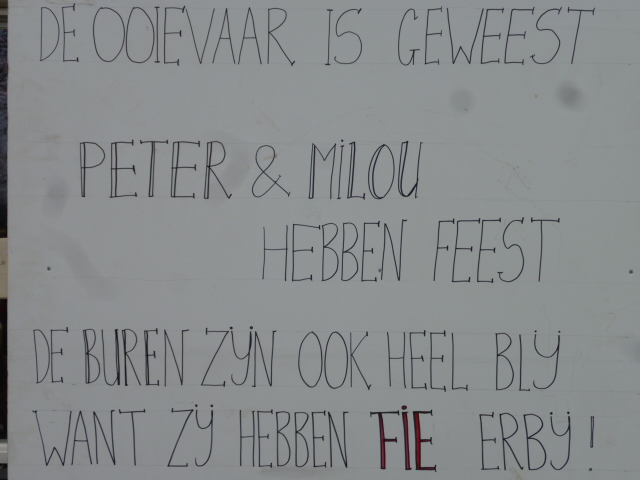 DE OOIEVAAR IS GEWEEST
PETER & MiLOU
HEBBEN FEEST
DE BUREN ZĲN OOK HEEL BLĲ
WANT ZĲ HEBBEN FiE ERBĲ!